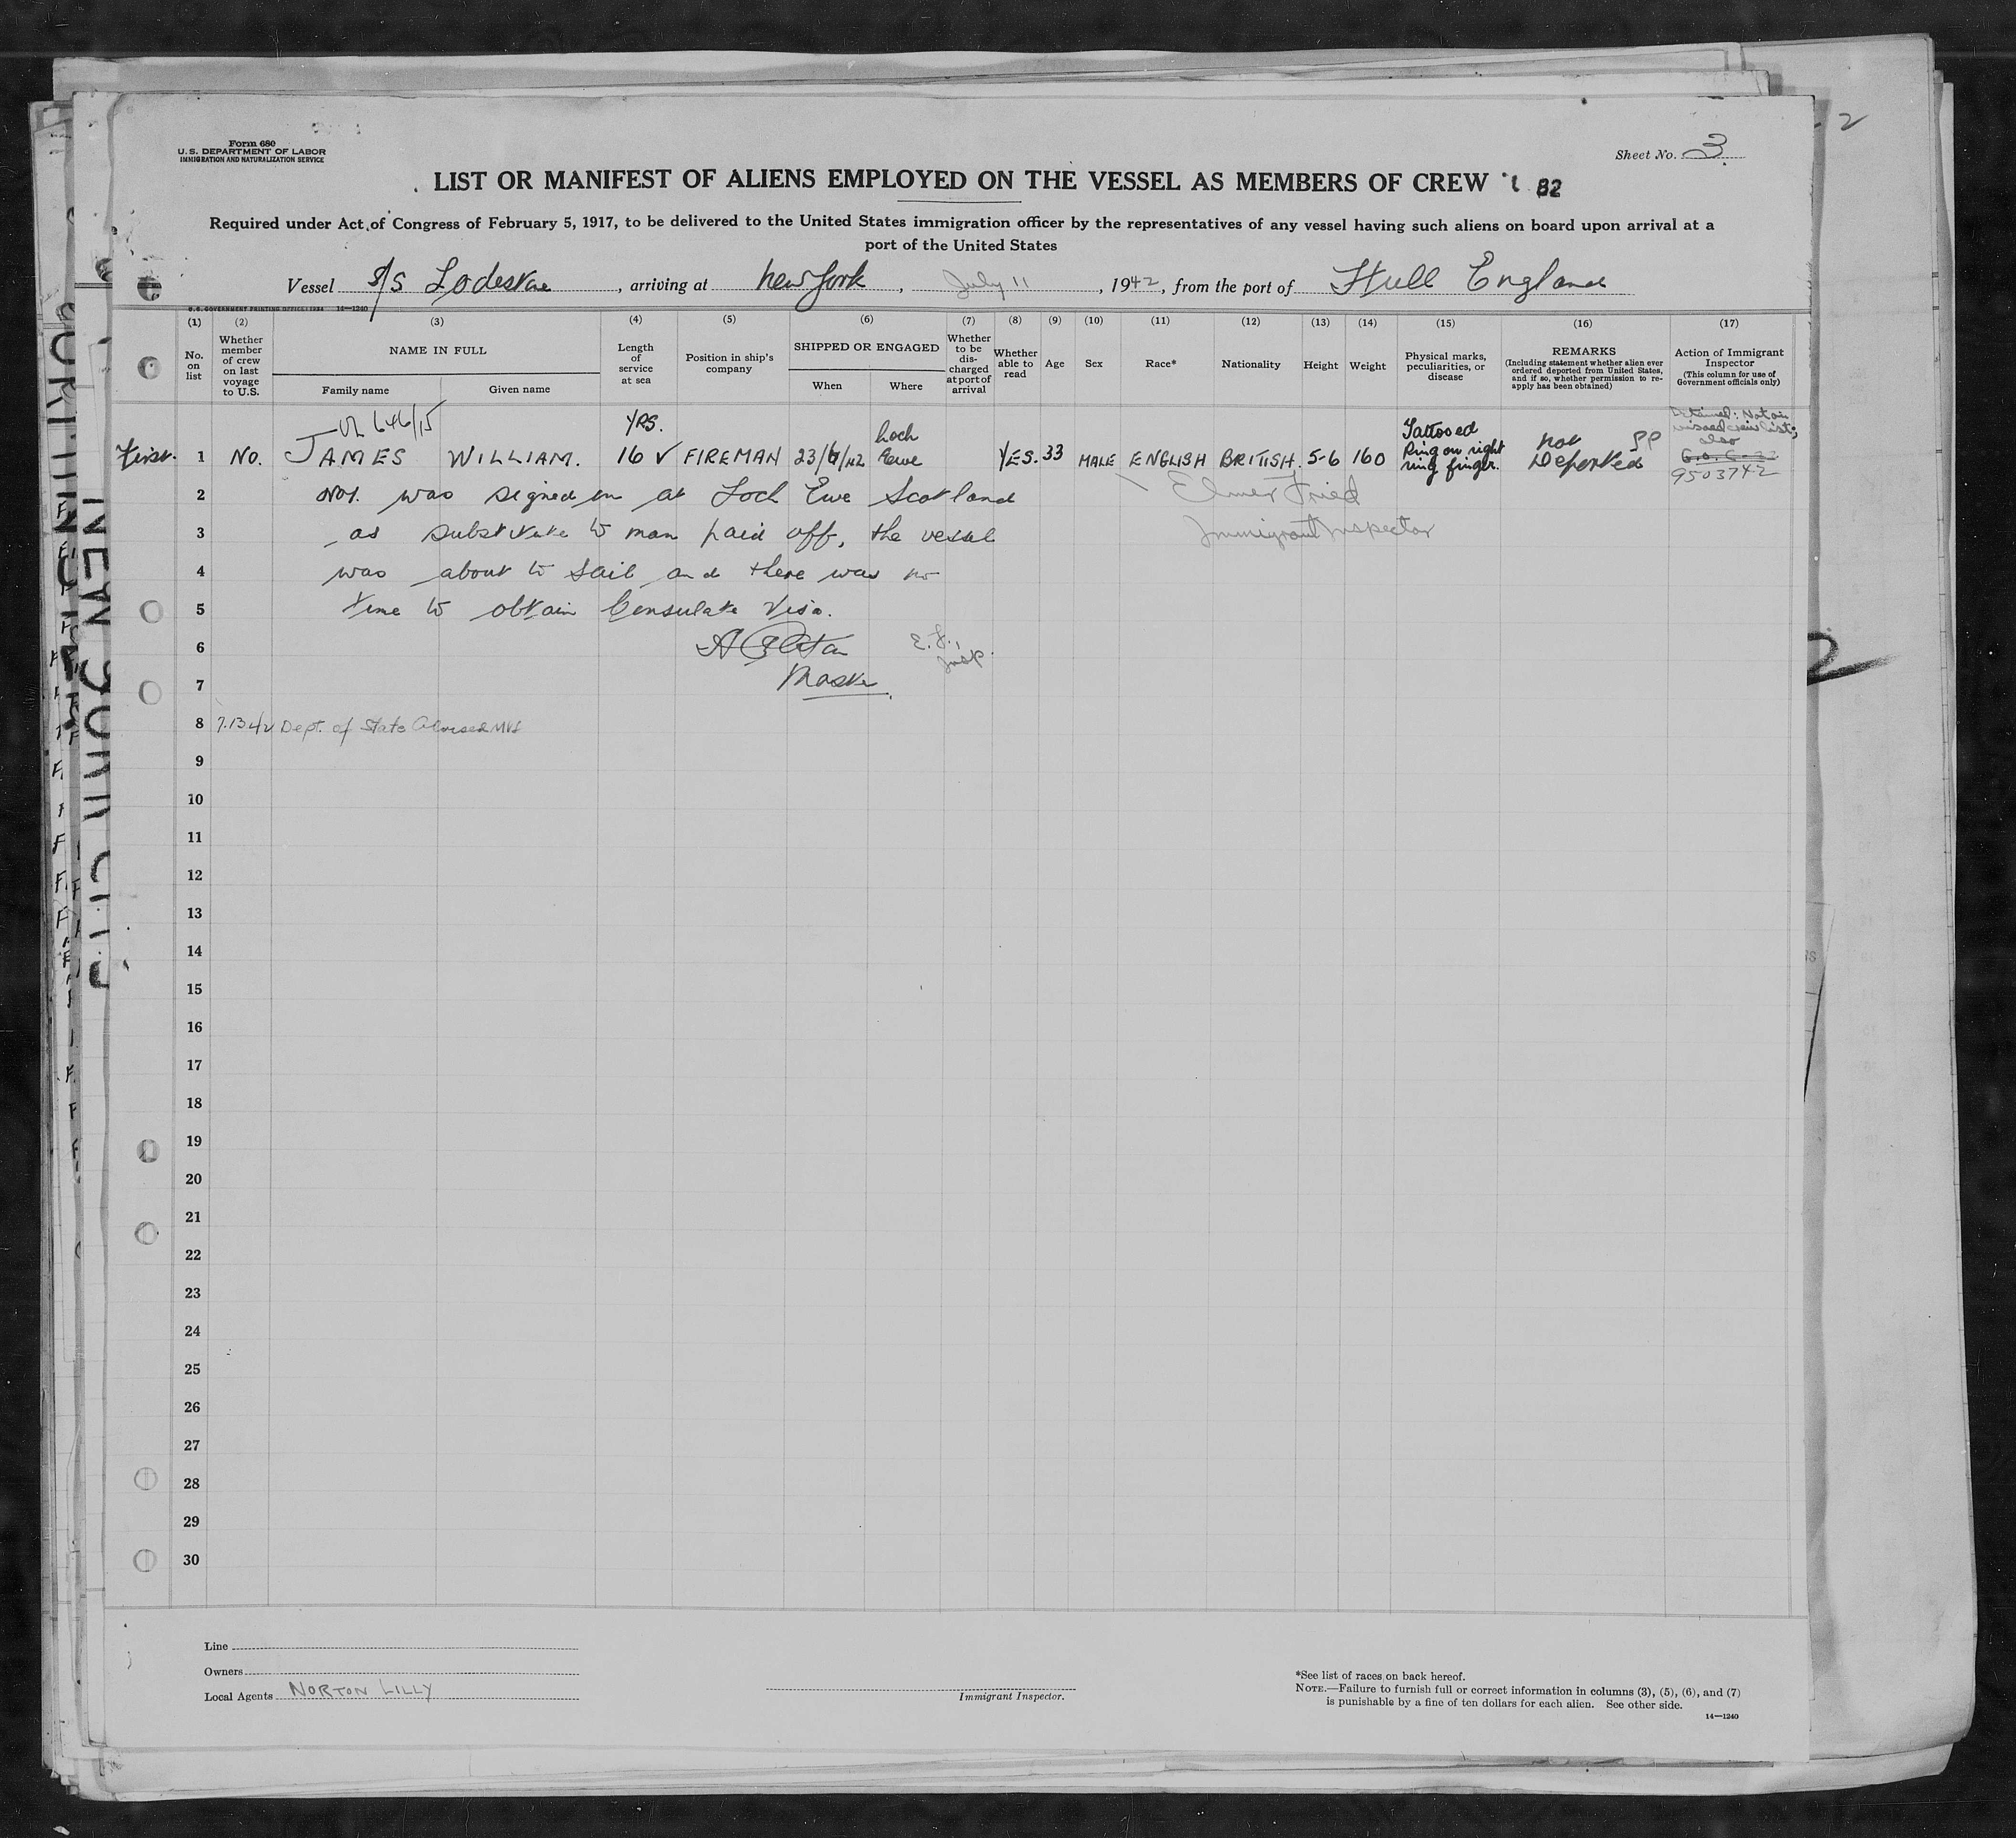 Form 680
U. S. DEPARTMENT OF LABOR
IMMIGRATION AND NATURALIZATION SERVICE
Sheet No. 3
LIST OR MANIFEST OF ALIENS EMPLOYED ON THE VESSEL AS MEMBERS OF CREW 82
Required under Act of Congress of February 5, 1917, to be delivered to the United States immigration officer by the representatives of any vessel having such aliens on board upon arrival at a
port of the United States
Vessel S/S Lodeskae, arriving at New York, July 11, 1942, from the port of Hull England
U.S. GOVERNMENT PRINTING OFFICE: 1934 14—1240
(1) (2) (3) (4) (5) (6) (7) (8) (9) (10) (11) (12) (13) (14) (15) (16) (17)
No. on list
Whether member of crew on last voyage to U.S.
NAME IN FULL
Family name
Given name
Length of service at sea
Position in ship's company
SHIPPED OR ENGAGED
When
Where
Whether to be discharged at port of arrival
Whether able to read
Age
Sex
Race*
Nationality
Height
Weight
Physical marks, peculiarities, or disease
REMARKS
(Including statement whether alien ever ordered deported from United States, and if so, whether permission to reapply has been obtained)
Action of Immigrant Inspector
(This column for use of Government officials only)
646/15
YRS.
First. 1 No. JAMES WILLIAM. 16 ✓ FIREMAN 23/6/42 Loch Ewe YES. 33 MALE ENGLISH BRITISH. 5-6 160 Tattooed Ring on right ring finger. not Deported SP
Detained: Not on visaed crew list; also
9503742
2 No1. was signed on at Loch Ewe Scotland Elmer Fried
3 as substitute to man paid off, the vessel Immigrant Inspector
4 was about to sail and there was no
5 time to obtain Consulate Visa.
6 E. F., Insp.
7 Master
8 7.13 42 Dept. of State Advised MVS
9
10
11
12
13
14
15
16
17
18
19
20
21
22
23
24
25
26
27
28
29
30
Line
Owners
Local Agents NORTON LILLY
Immigrant Inspector.
*See list of races on back hereof.
NOTE.—Failure to furnish full or correct information in columns (3), (5), (6), and (7)
is punishable by a fine of ten dollars for each alien. See other side.
14—1240